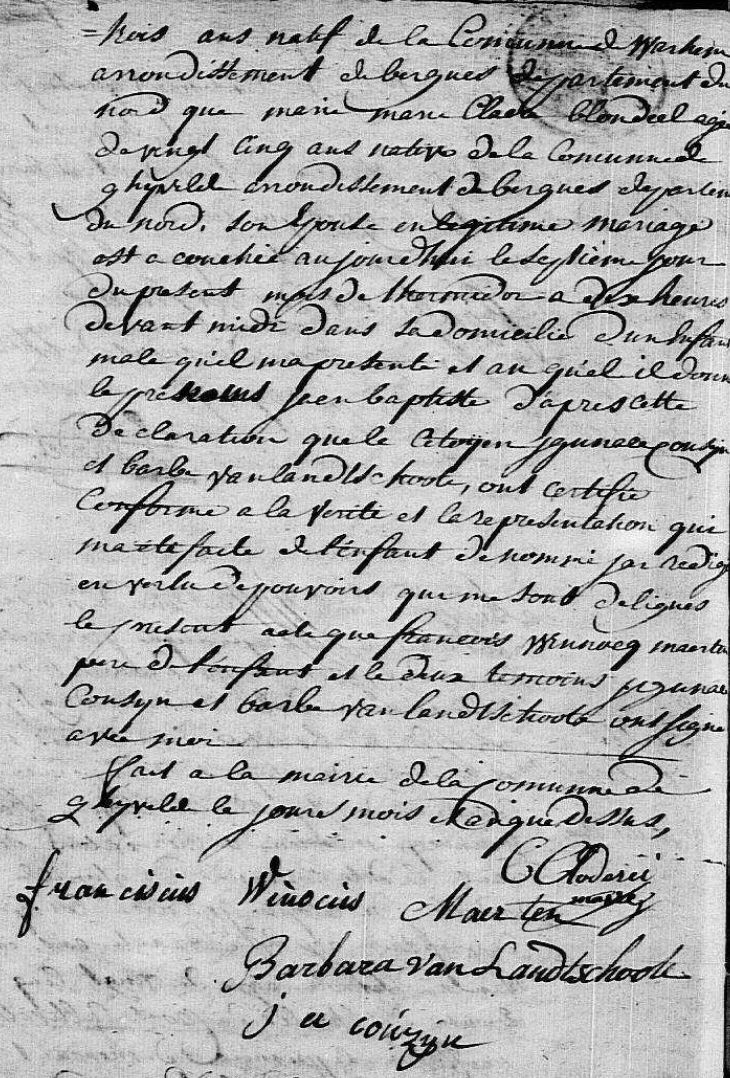 =trois ans natif de la Comunne de Warhem
arrondissement de bergues departement du
nord que marie marie Claere blondeel agée
de vingt cinq ans native de la Comunne de
ghyvelde arrondissement de bergues departem
du nord, son Epouse en legitime mariage
est acouchée aujourdhui le septième jour
du present mois de thermidor a dix heures
devant midi dans sa domicilie d'un Enfant
male qu'il ma presenté et au quel il donn
le prenoms jean baptiste d'apres cette
Declaration que le Citoyen jgunace cousyn
et barbe vanlandtschoote, ont certifie
Conforme a la verité et la representation qui
ma ete faite de l'enfant denommé jai redigé
en vertu de pouvoirs que me sont deligués
le present acte que francois Winnocq maerten
pere de l'enfant et le deux temoins jgunace
Cousyn et barbe vanlandtschoote ont signe
avec moi
fait a la mairie de la comunne de
ghyvelde le jours mois et an que dessus,
franciscus Winocius Maerten
maire
Barbara van Landtschoote
j couzyn